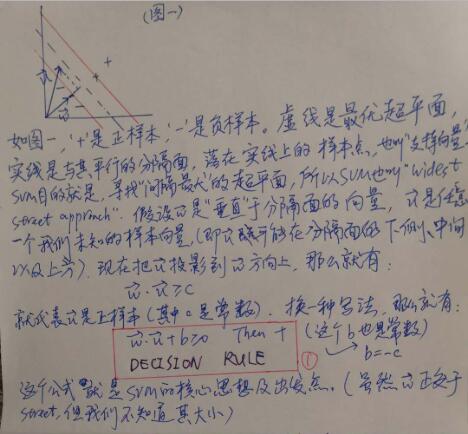 (图一)
如图一,'+'是正样本,'-'是负样本。虚线是最优超平面,
实线是与其平行的分隔面,落在实线上的样本点,也叫"支持向量"
SVM目的就是,寻找"间隔最大"的超平面,所以SVM也叫"widest
street approach". 假设w是"垂直"于分隔面的向量,u是任意
一个我们未知的样本向量,(即u既可能在分隔面的下侧、中间
以及上方). 现在把u投影到w方向上,那么就有:
w·u≥c
就代表u是正样本(其中c是常数). 换一种写法,那么就有:
w·u+b≥0 Then + (这个b也是常数)
DECISION RULE ① b=-c
这个公式就是SVM的核心思想及出发点.(虽然w正交于
street,但我们不知道其大小)